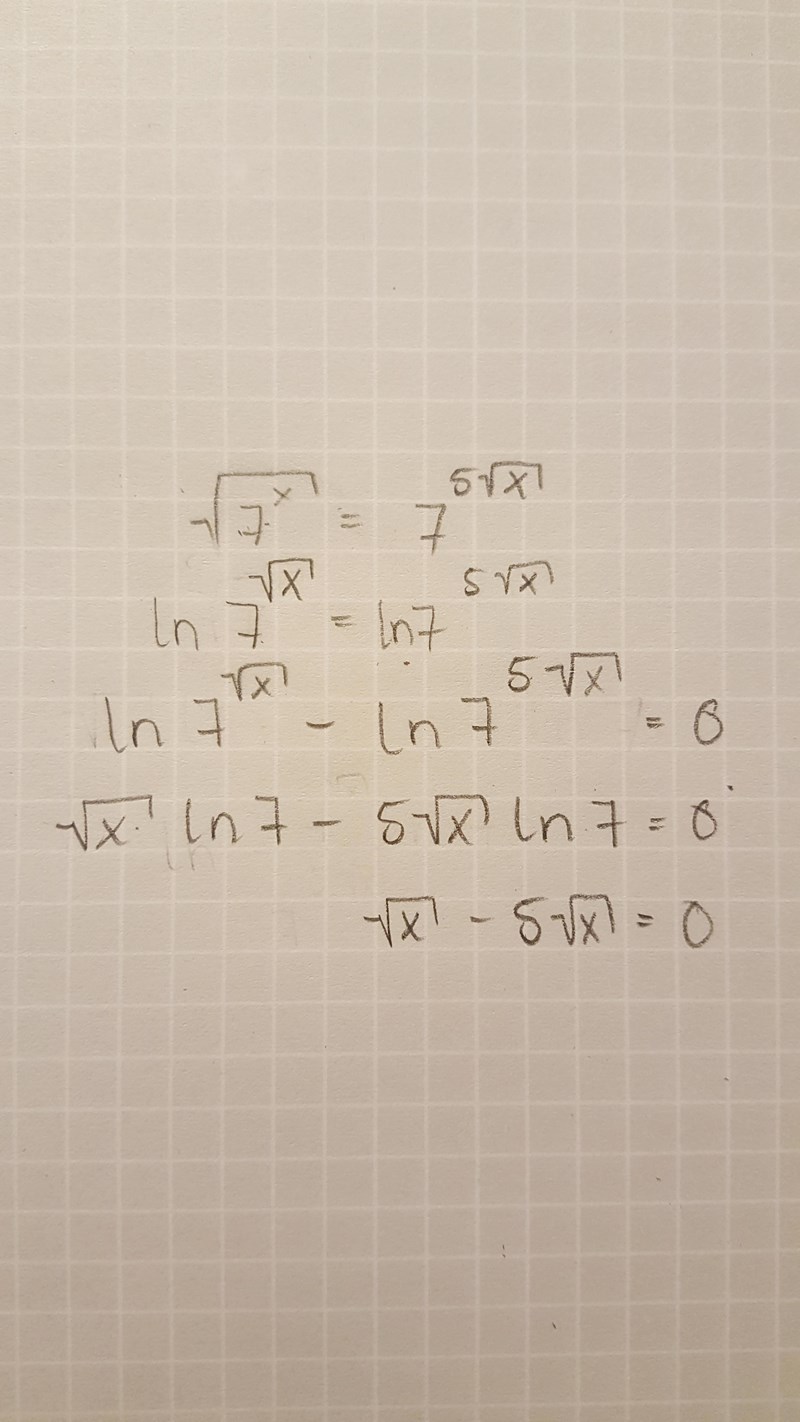 √(7^x) = 7^(5√x)
ln 7^(√x) = ln 7^(5√x)
ln 7^(√x) - ln 7^(5√x) = 0
√x ln 7 - 5√x ln 7 = 0
√x - 5√x = 0